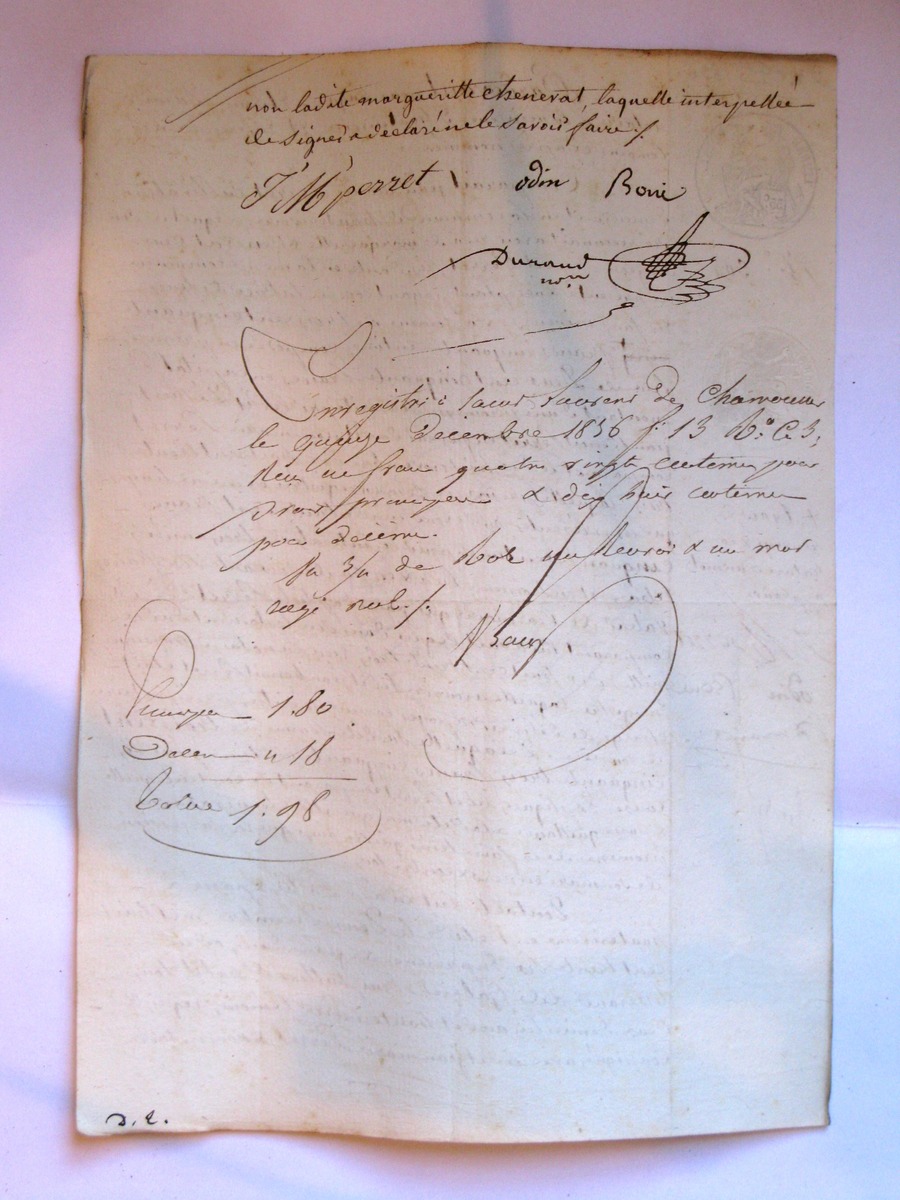 non ladite margueritte chenevat, laquelle interpellée
de signer a déclaré ne le savoir faire ./.
J M perret odin Boni
Durand
no.re
Enregistré à Saint Laurent de Chamousset
le quinze Decembre 1836 f° 13 v° C. 3,
Reçu un franc quatre vingt centimes pour
droit principal & dix huit centimes
pour décime.
un renvoi & un mot
rayé nul ./.
Principal 1.80
Décime " 18
Total 1.98
D. 2.